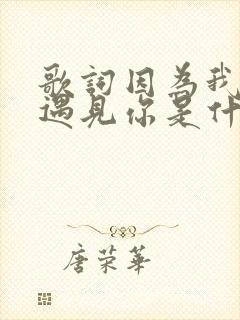 歌詞因為我
遇見你是什
唐荣華